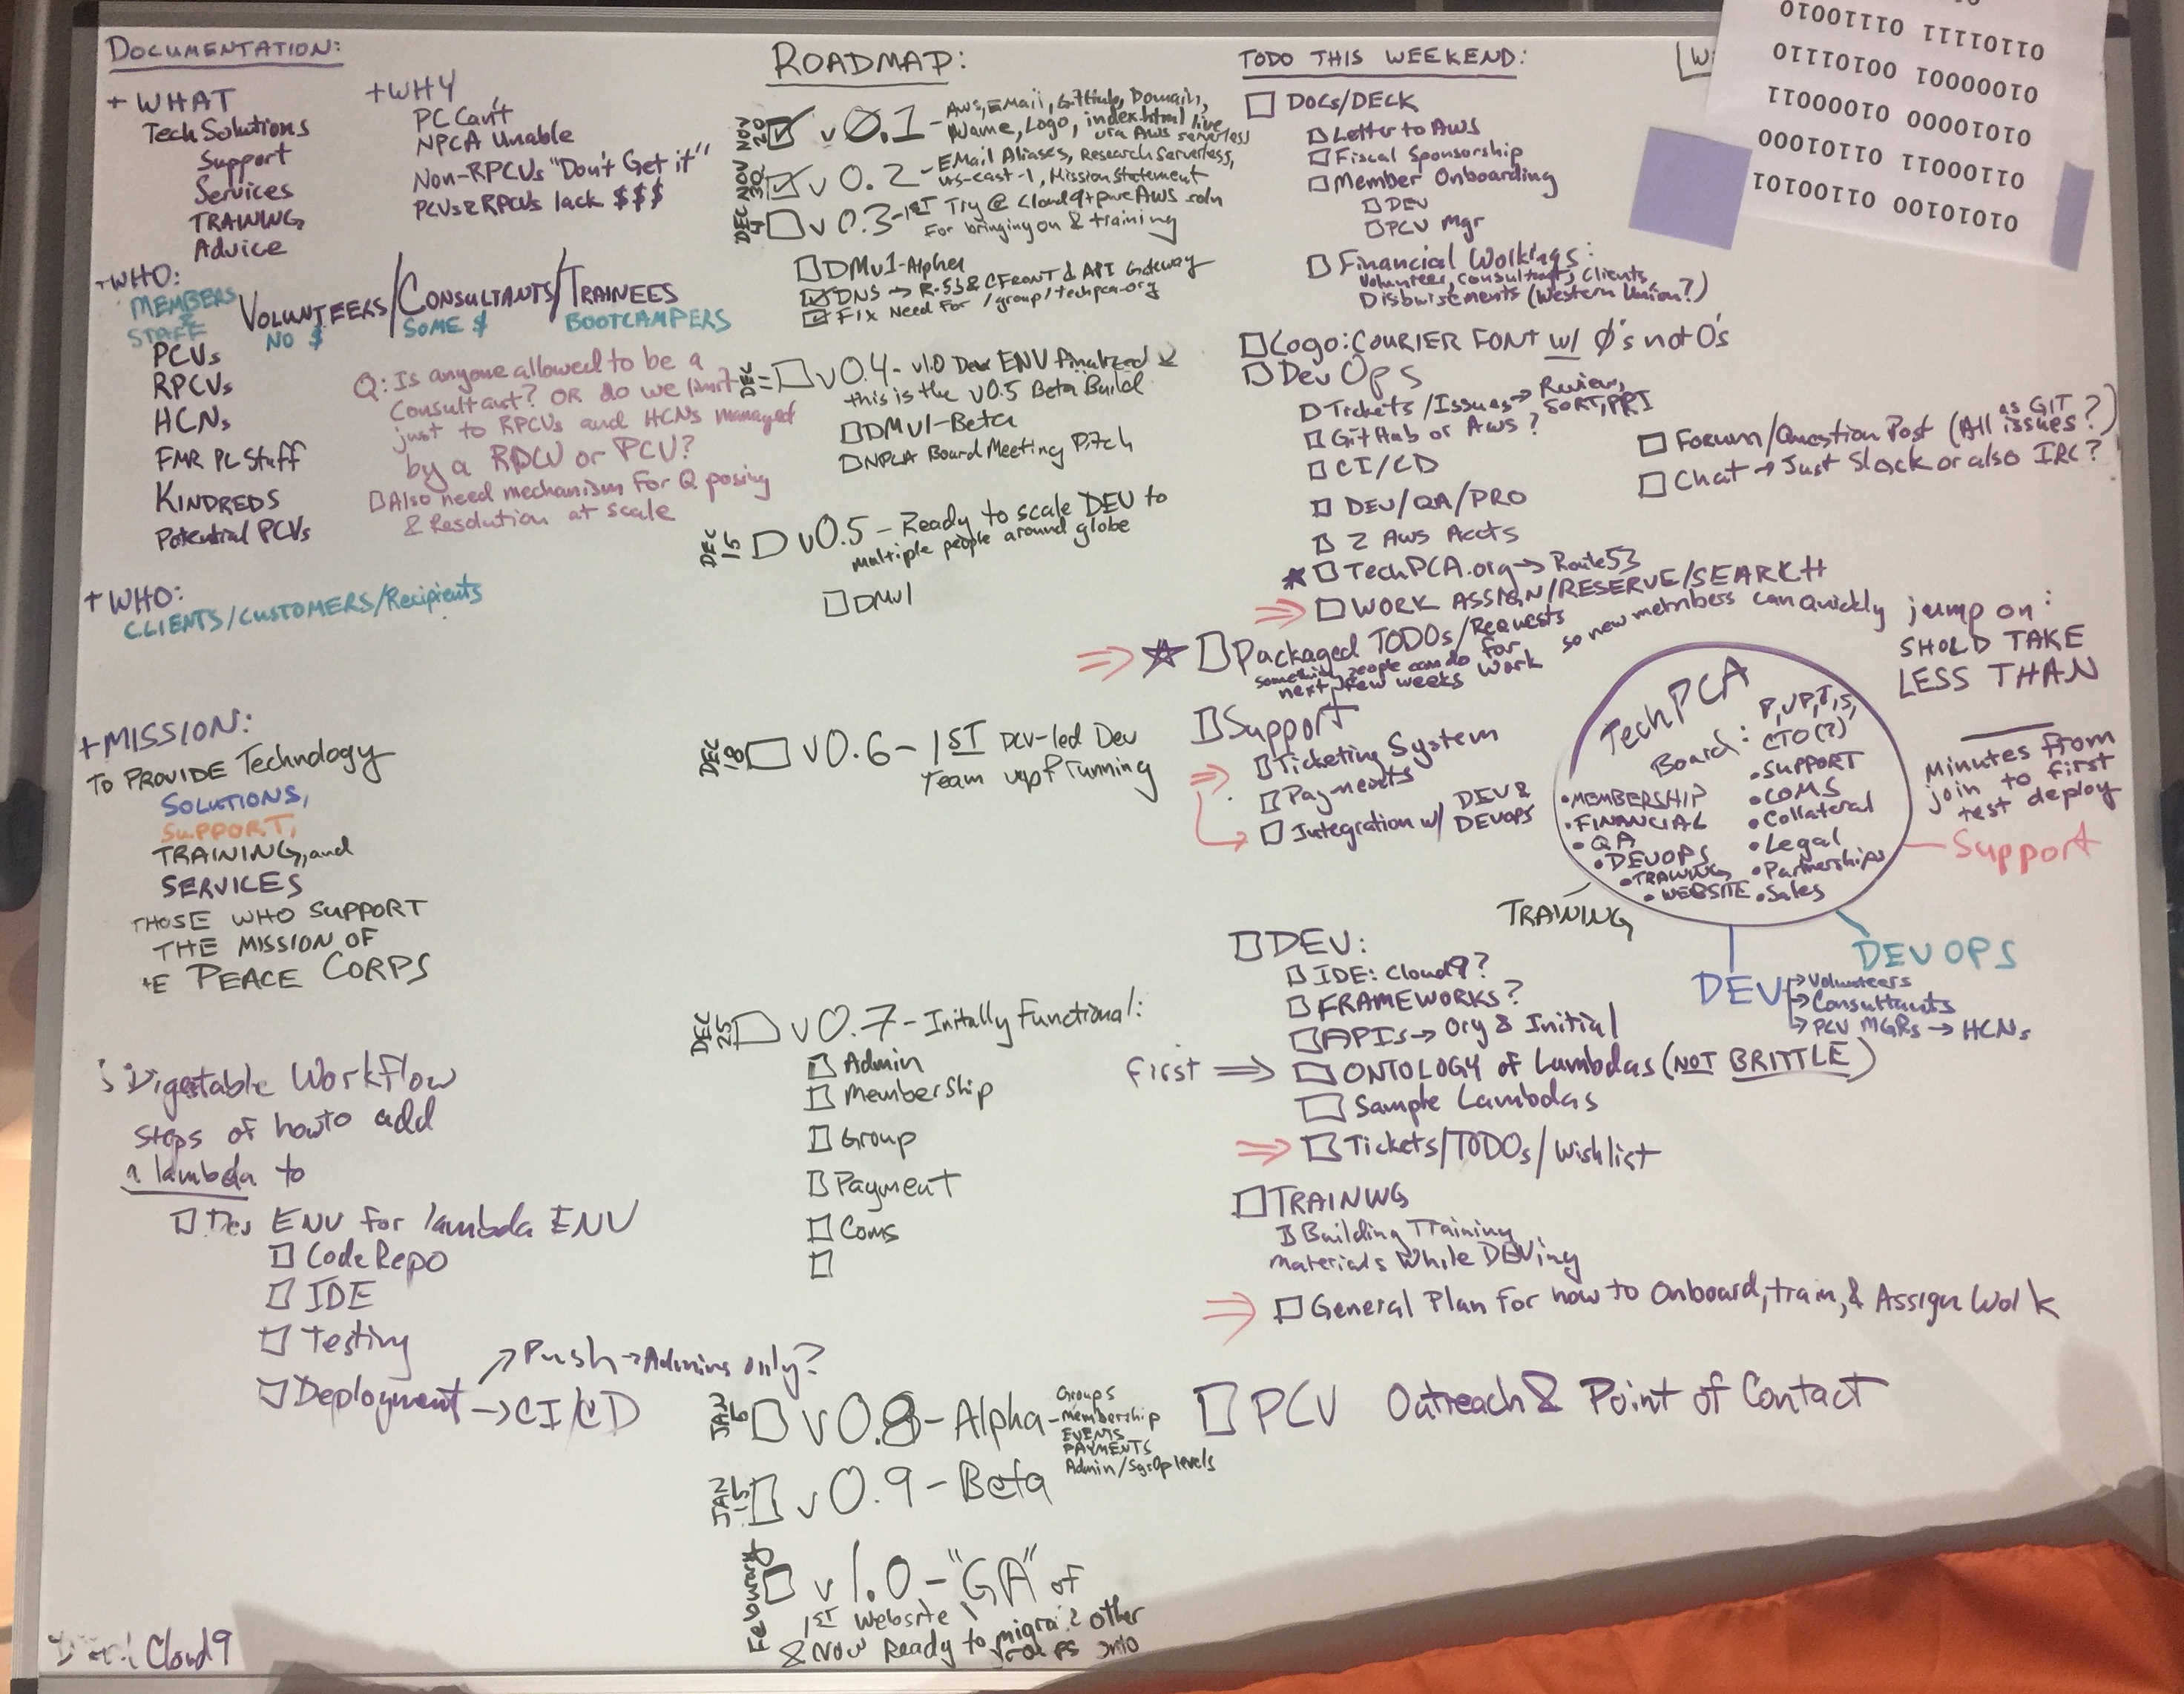 DOCUMENTATION:
+ WHAT
Tech Solutions
Support
Services
TRAINING
Advice
+WHY
PC Can't
NPCA Unable
Non-RPCVs "Don't Get it"
PCVs & RPCVs lack $$$
+WHO:
MEMBERS
&
STAFF
VOLUNTEERS/CONSULTANTS/TRAINEES
NO $
SOME $
BOOTCAMPERS
PCVs
RPCVs
HCNs
FMR PC Staff
KINDREDS
Potential PCVs
Q: Is anyone allowed to be a
Consultant? OR do we limit
just to RPCVs and HCNs managed
by a RPCV or PCV?
Also need mechanism for Q posing
& Resolution at scale
+ WHO:
CLIENTS/CUSTOMERS/Recipients
+MISSION:
TO PROVIDE Technology
SOLUTIONS,
SUPPORT,
TRAINING, and
SERVICES
THOSE WHO SUPPORT
THE MISSION OF
PEACE CORPS
Digestable Workflow
steps of howto add
a lambda to
Dev ENV for lambda ENV
Code Repo
IDE
Testing
Deployment → CI/CD
Push → Admins only?
Cloud9
ROADMAP:
NOV 20 v0.1 - AWS, EMail, GitHub, Domain,
Name, Logo, index.html live
via AWS serverless
NOV 30 v0.2 - EMail Aliases, Research Serverless,
us-east-1, Mission Statement
DEC 4 v0.3 - 1ST Try @ Cloud9 + pure AWS soln
For bringing on & training
DMv1-Alpha
DNS → R-53 & CFRONT & API Gateway
Fix Need For /group/techpca-org
DEC 11 v0.4 - v1.0 Dev ENV finalized
this is the v0.5 Beta Build
DMv1-Beta
NPCA Board Meeting Pitch
DEC 15 v0.5 - Ready to scale DEV to
multiple people around globe
DMv1
DEC 18 v0.6 - 1ST PCV-led Dev
Team up & running
DEC 25 v0.7 - Initally Functional:
Admin
Membership
Group
Payment
Coms
JAN 6 v0.8 - Alpha -
Groups
Membership
EVENTS
PAYMENTS
Admin/SgrOp levels
JAN 15 v0.9 - Beta
Febuwary v1.0 - "GA" of
1ST Website
& Now Ready to migrate other
groups onto
TODO THIS WEEKEND:
DOCS/DECK
Letter to AWS
Fiscal Sponsorship
Member Onboarding
DEV
PCV Mgr
Financial Workings:
Volunteer, consultant, Clients,
Disbursements (Western Union?)
Logo: COURIER FONT w/ Ø's not O's
DevOps
Tickets/Issues → Review,
SORT, PRI
GitHub or AWS?
CI/CD
DEV/QA/PRO
2 AWS Accts
TechPCA.org → Route53
⇒ WORK ASSIGN/RESERVE/SEARCH
⇒ ☆ Packaged TODOs/Requests
something people can do for
next few weeks work
so new members can quickly jump on:
SHOLD TAKE
LESS THAN
Minutes from
join to first
test deploy
Forum/Question Post (All as GIT issues?)
Chat → Just Slack or also IRC?
Support
⇒ Ticketing System
Payments
Integration w/ DEV &
DEVOPS
TechPCA
Board: P, VP, T, S,
CTO(?)
• SUPPORT
• COMS
• Collateral
• Legal
• Partnerships
• Sales
• MEMBERSHIP
• FINANCIAL
• QA
• DEVOPS
• TRAINING
• WEBSITE
Support
TRAINING
DEVOPS
DEV
→ Volunteers
→ Consultants
→ PCV MGRs → HCNs
DEV:
IDE: Cloud9?
FRAMEWORKS?
APIs → Org & Initial
First ⇒ ONTOLOGY of Lambdas (NOT BRITTLE)
Sample Lambdas
⇒ Tickets/TODOs/Wishlist
TRAINING
Building Training
materials While DEVing
⇒ General Plan For how to Onboard, train, & Assign Work
PCV Outreach & Point of Contact
01010100 01100101
01100011 01101000
01010000 01000011
01000001 00101110
01101111 01110010